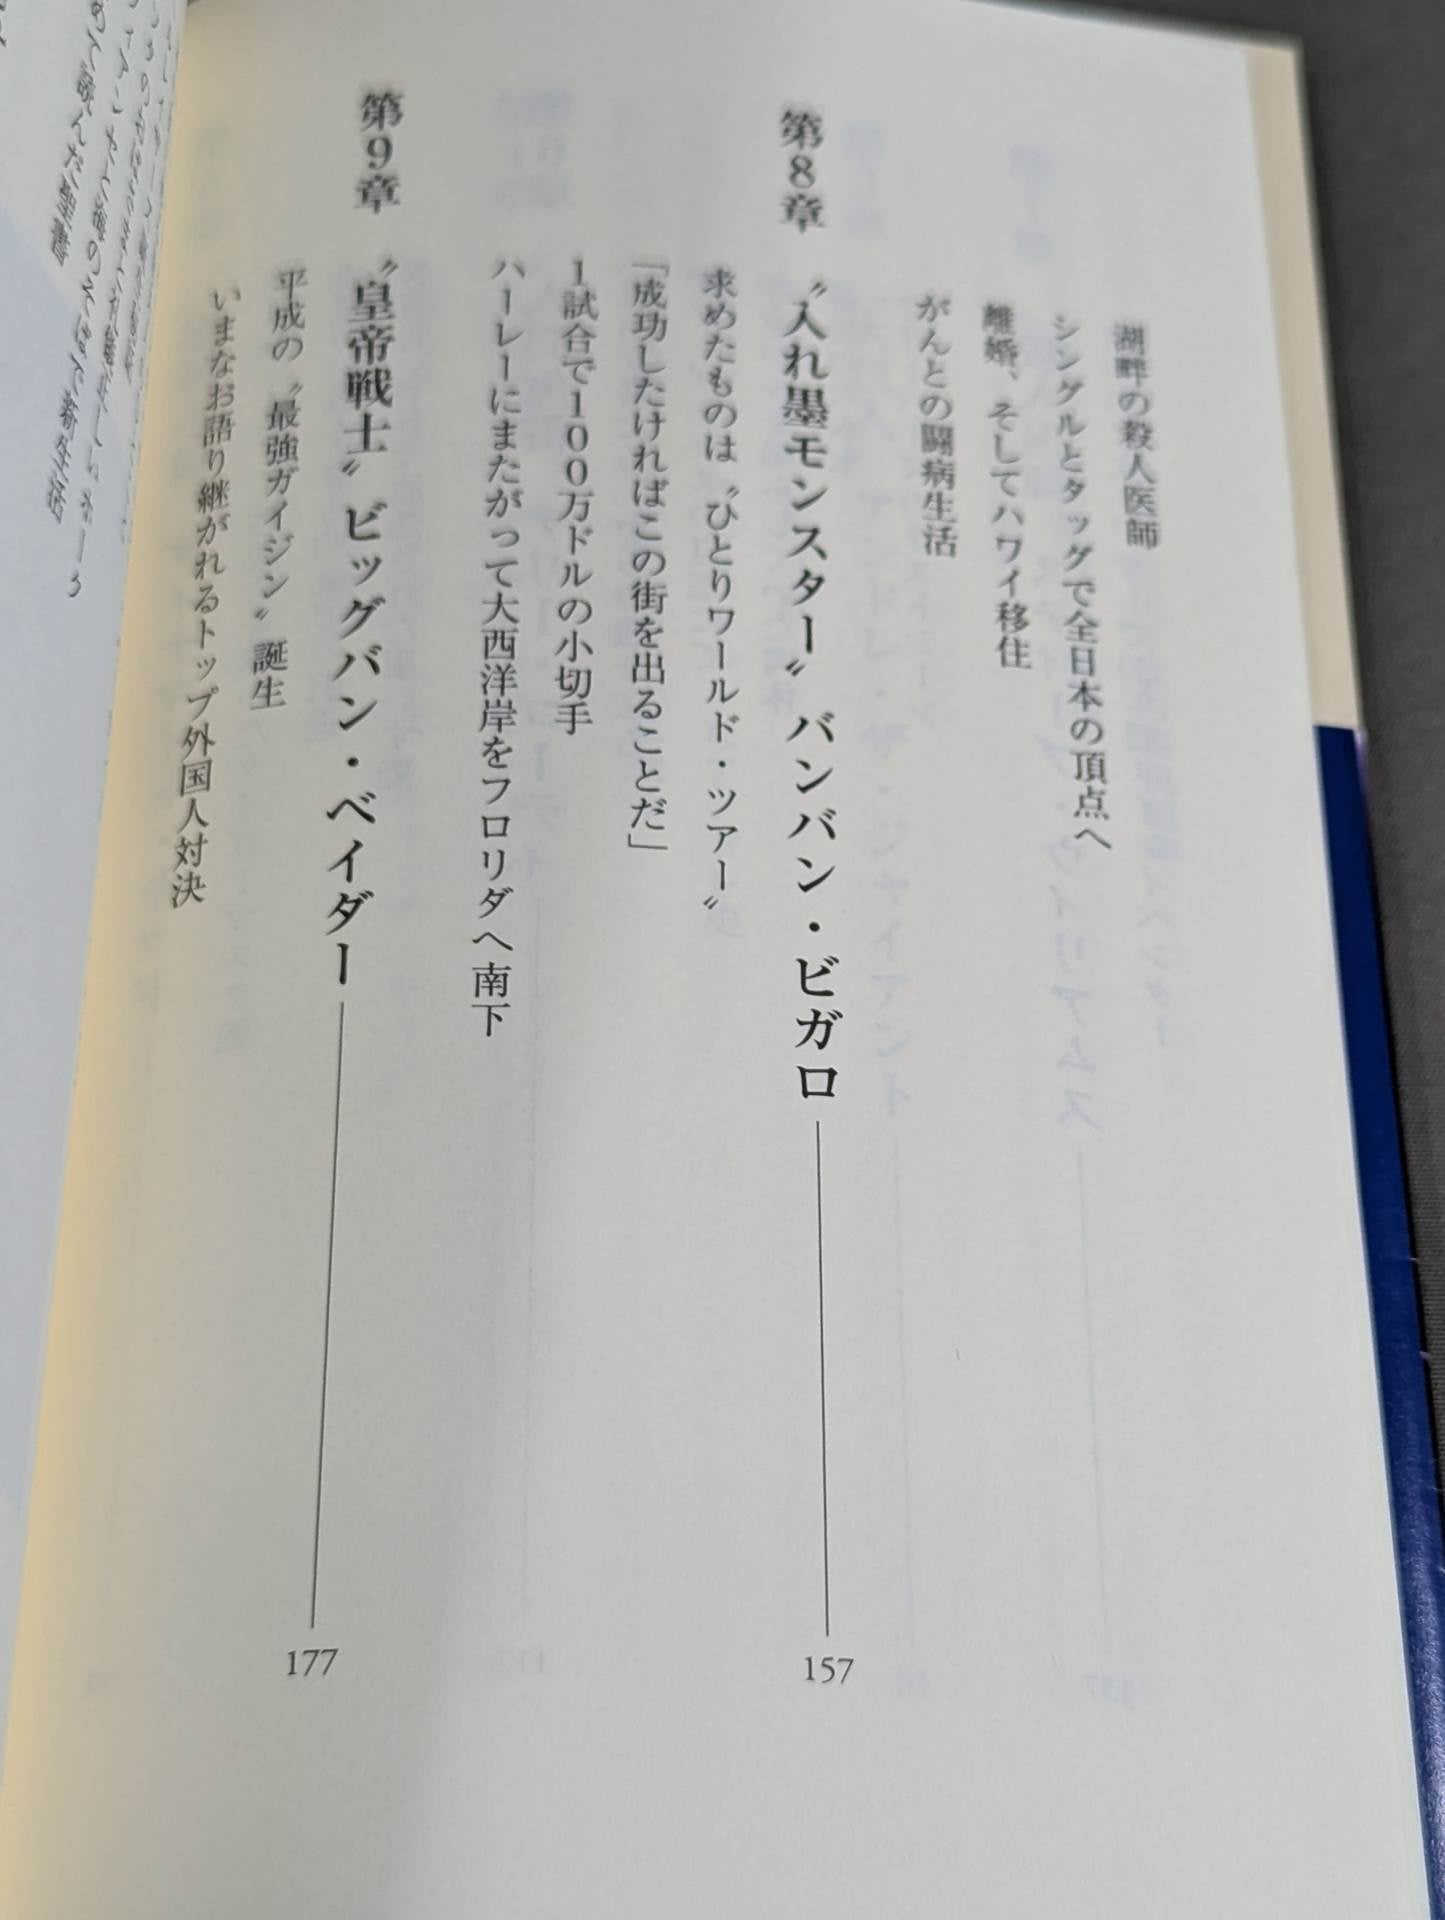 湖畔の殺人医師
シングルとタッグで全日本の頂点へ
離婚、そしてハワイ移住
がんとの闘病生活
第8章 〝入れ墨モンスター〟 バンバン・ビガロ 157
求めたものは〝ひとりワールド・ツアー〟
「成功したければこの街を出ることだ」
1試合で100万ドルの小切手
ハーレーにまたがって大西洋岸をフロリダへ南下
第9章 〝皇帝戦士〟 ビッグバン・ベイダー 177
平成の〝最強ガイジン〟誕生
いまなお語り継がれるトップ外国人対決
めて読んだ聖書